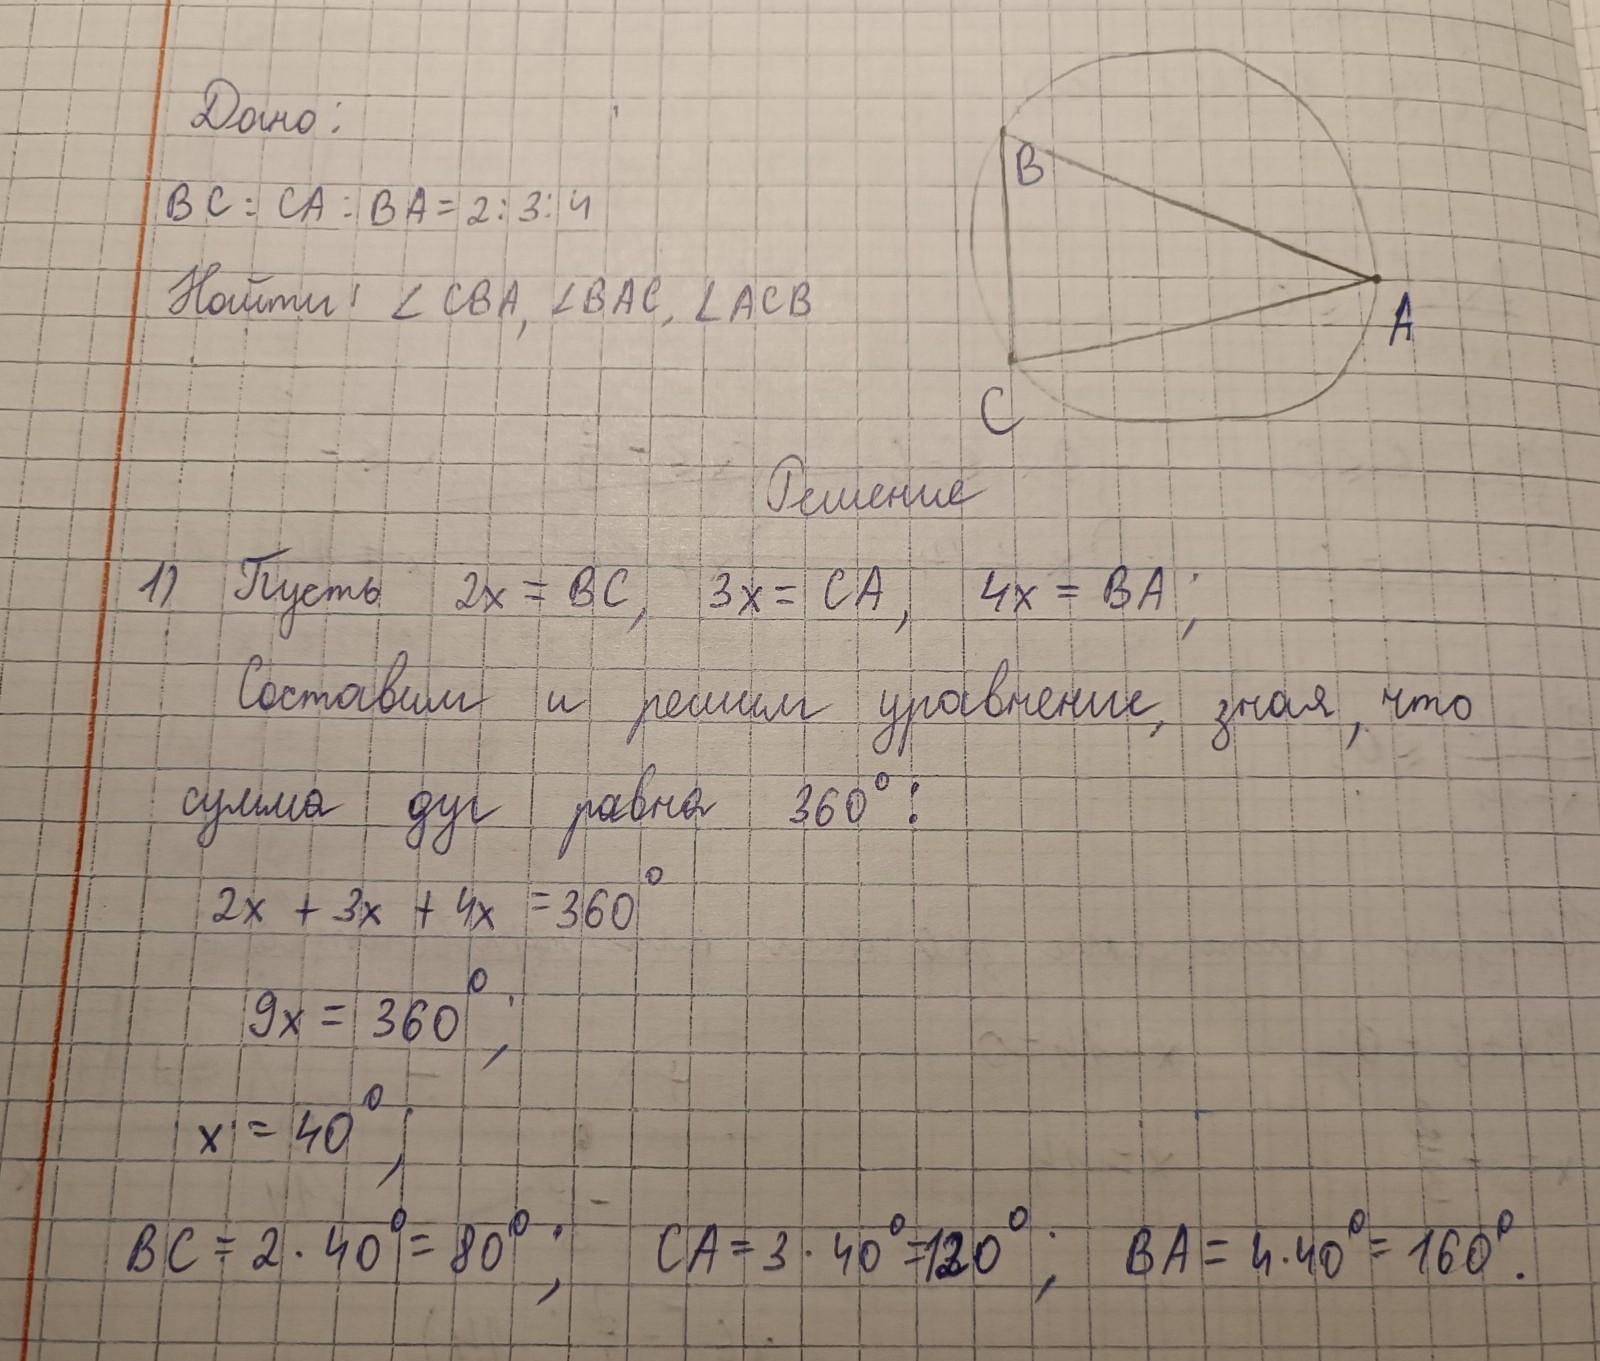 Дано:
BC : CA : BA = 2 : 3 : 4
Найти: ∠CBA, ∠BAC, ∠ACB
B
A
C
Решение
1) Пусть 2x = BC, 3x = CA, 4x = BA;
Составим и решим уравнение, зная, что
сумма дуг равна 360°:
2x + 3x + 4x = 360°
9x = 360°;
x = 40°;
BC = 2 · 40° = 80°; CA = 3 · 40° = 120°; BA = 4 · 40° = 160°.